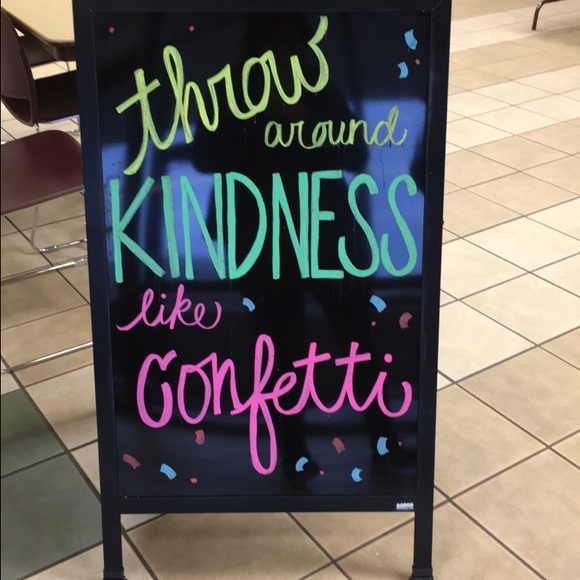 throw
around
KINDNESS
like
confetti